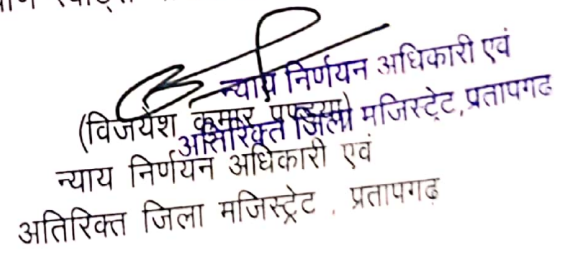 न्याय निर्णयन अधिकारी एवं
अतिरिक्त जिला मजिस्टेट,प्रतापगढ
(विजयेश कुमार पण्ड्या)
न्याय निर्णयन अधिकारी एवं
अतिरिक्त जिला मजिस्ट्रेट , प्रतापगढ़